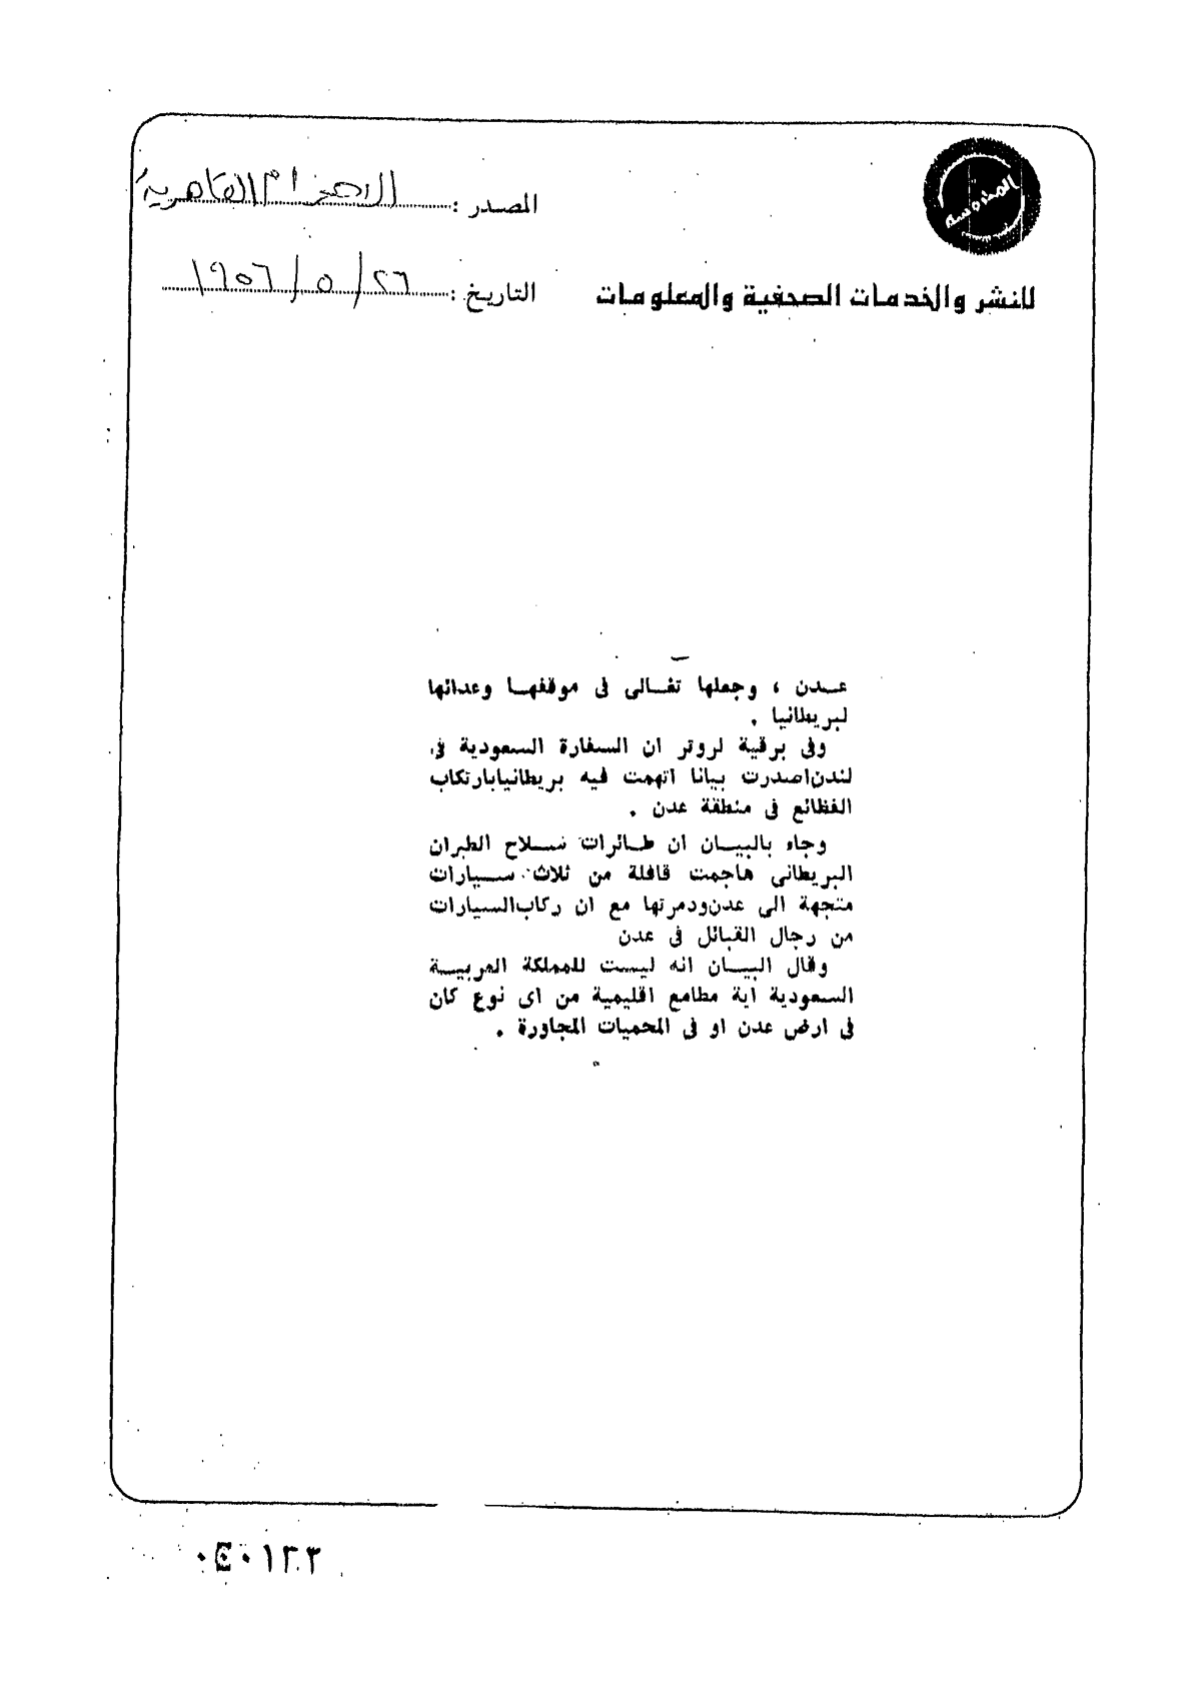 المحروسة
المصدر : الاهرام القاهرية
للنشر والخدمات الصحفية والمعلومات
التاريخ : ٢٦ / ٥ / ١٩٥٦
عـدن ، وجعلها تغـالى فى موقفهـا وعدائها
لبريطانيا .
وفى برقية لروتر ان السفارة السعودية فى
لندن اصدرت بيانا اتهمت فيه بريطانيا بارتكاب
الفظائع فى منطقة عدن .
وجاء بالبيـان ان طـائرات سـلاح الطيران
البريطانى هاجمت قافلة من ثلاث سـيارات
متجهة الى عدن ودمرتها مع ان ركاب السيارات
من رجال القبائل فى عدن
وقال البيـان انه ليست للمملكة العربيـة
السعودية اية مطامع اقليمية من اى نوع كان
فى ارض عدن او فى المحميات المجاورة .